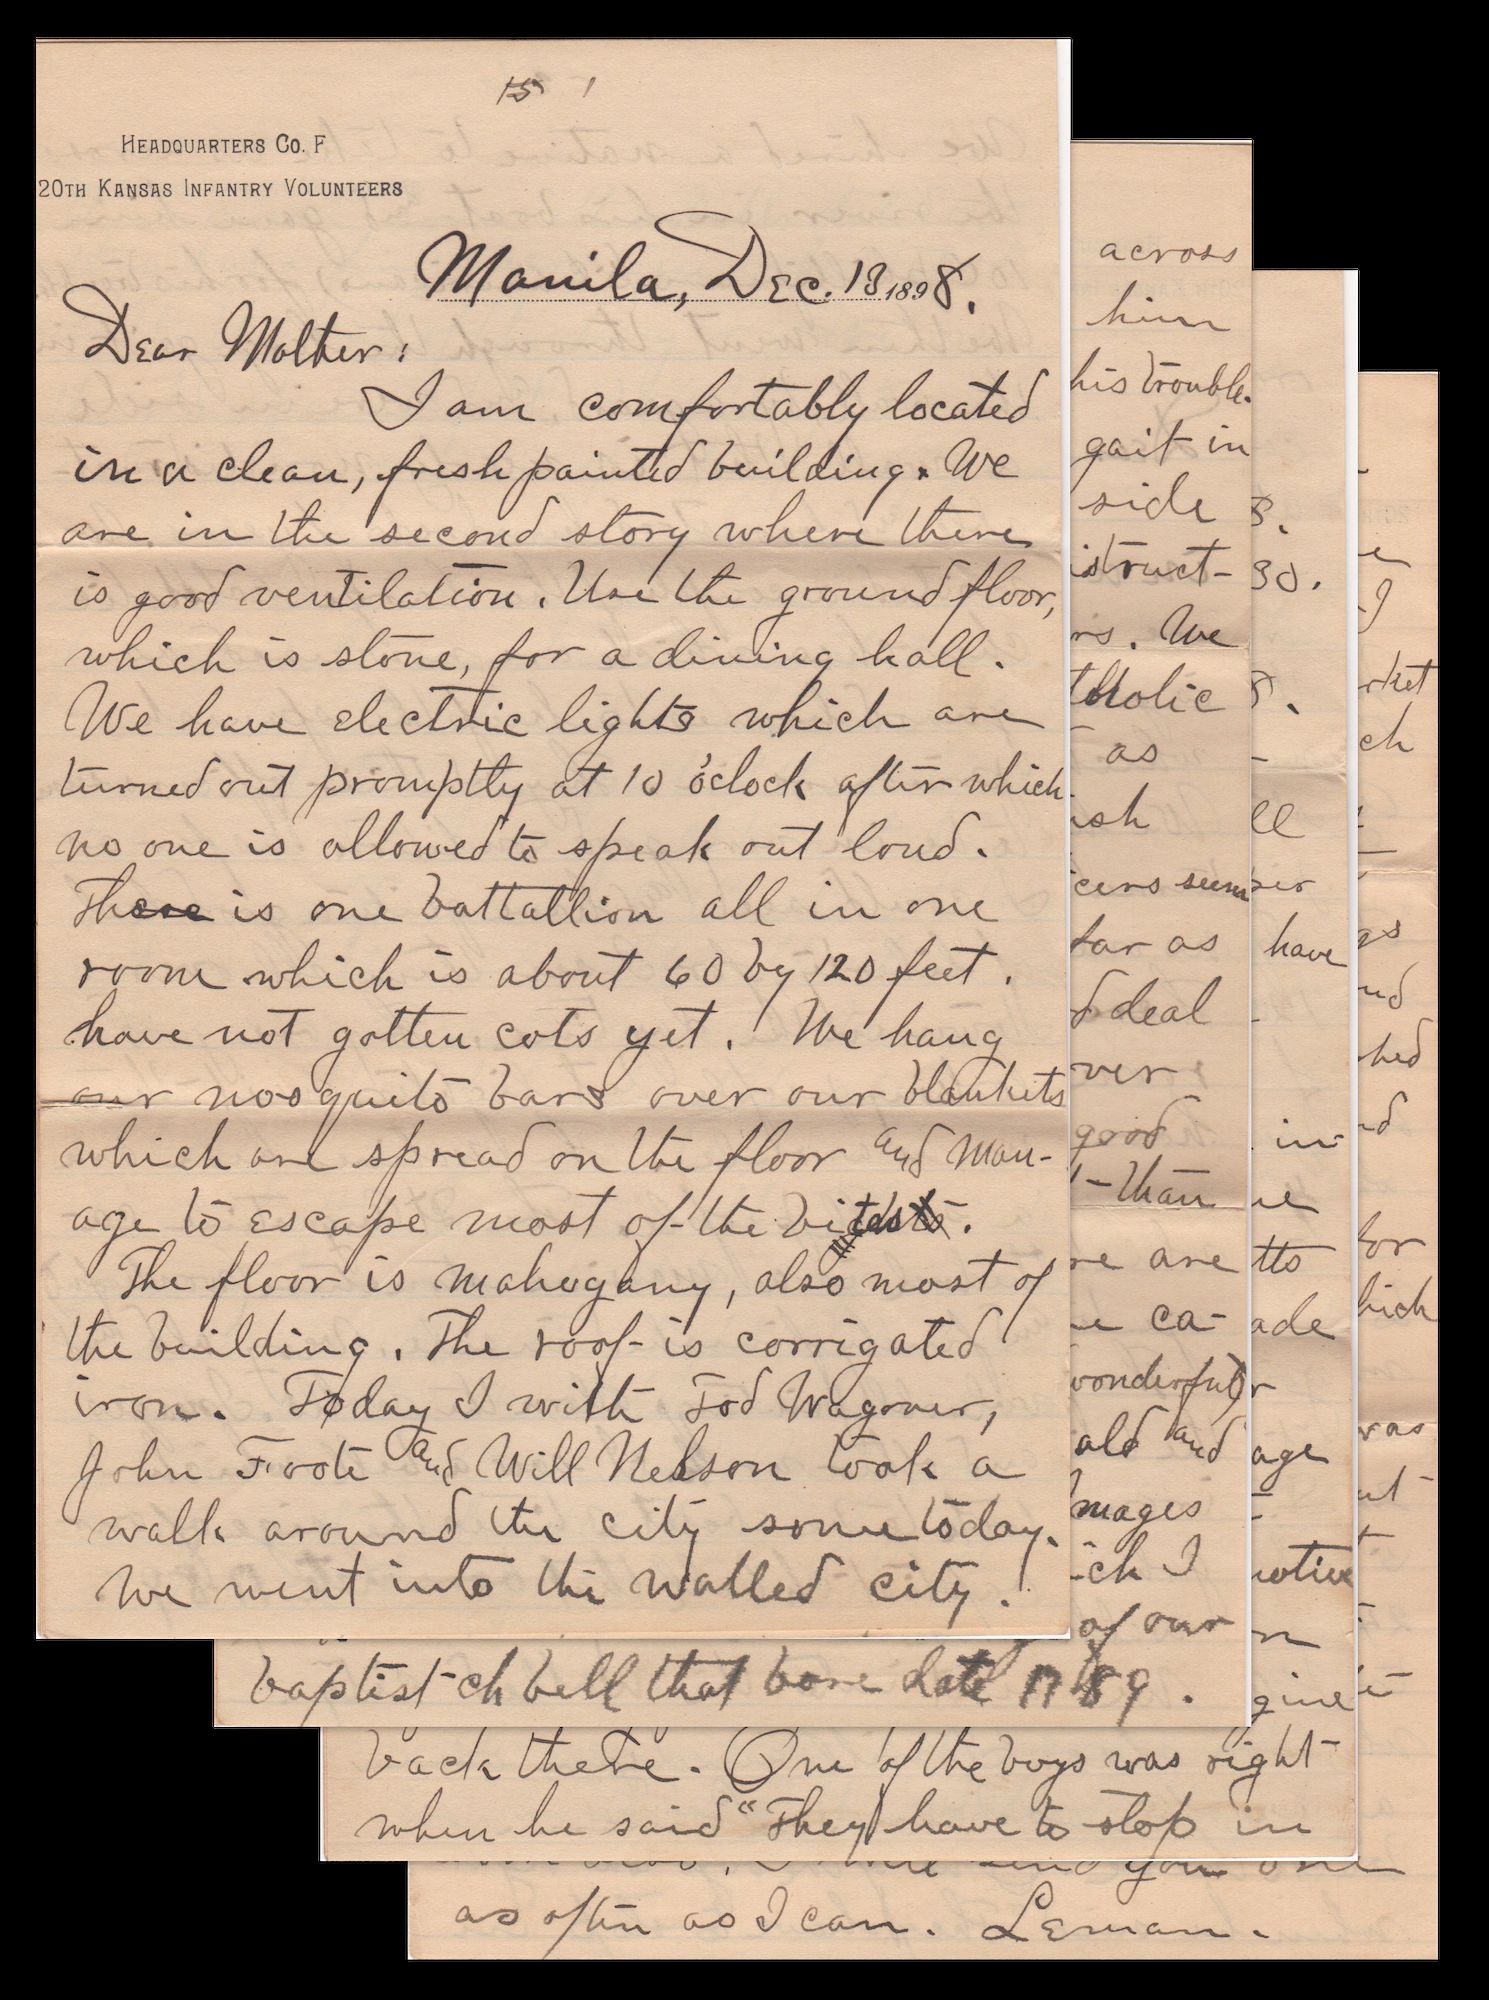 15 1
HEADQUARTERS CO. F
20TH KANSAS INFANTRY VOLUNTEERS
Manila, Dec. 13 1898.
Dear Mother:
I am comfortably located
in a clean, fresh painted building. We
are in the second story where there
is good ventilation. Use the ground floor,
which is stone, for a dining hall.
We have electric lights which are
turned out promptly at 10 o'clock after which
no one is allowed to speak out loud.
There is one battallion all in one
room which is about 60 by 120 feet.
have not gotten cots yet. We hang
our mosquito bars over our blankets
which are spread on the floor and man-
age to escape most of the bites.
The floor is mahogany, also most of
the building. The roof is corrigated
iron. Today I with Tod Wagoner,
John Foote and Will Nelson took a
walk around the city some today.
We went into the walled city.
across
him
his trouble.
gait in
side
istruct-
rs. We
tholic
as
ish
icers seem
far as
d deal
ver
good
-than
re are
ca-
wonderful
old and
Images
ich I
of our
baptist ch bell that bore date 1789.
8.
30.
8.
ell
per
have
in-
ne
tto
ade
r
age
notice
n
gine
back there. One of the boys was right
when he said "They have to stop in
e
I
rket
ch
gs
nd
shed
nd
for
hich
was
ut
I will send you one
as often as I can. Leman.